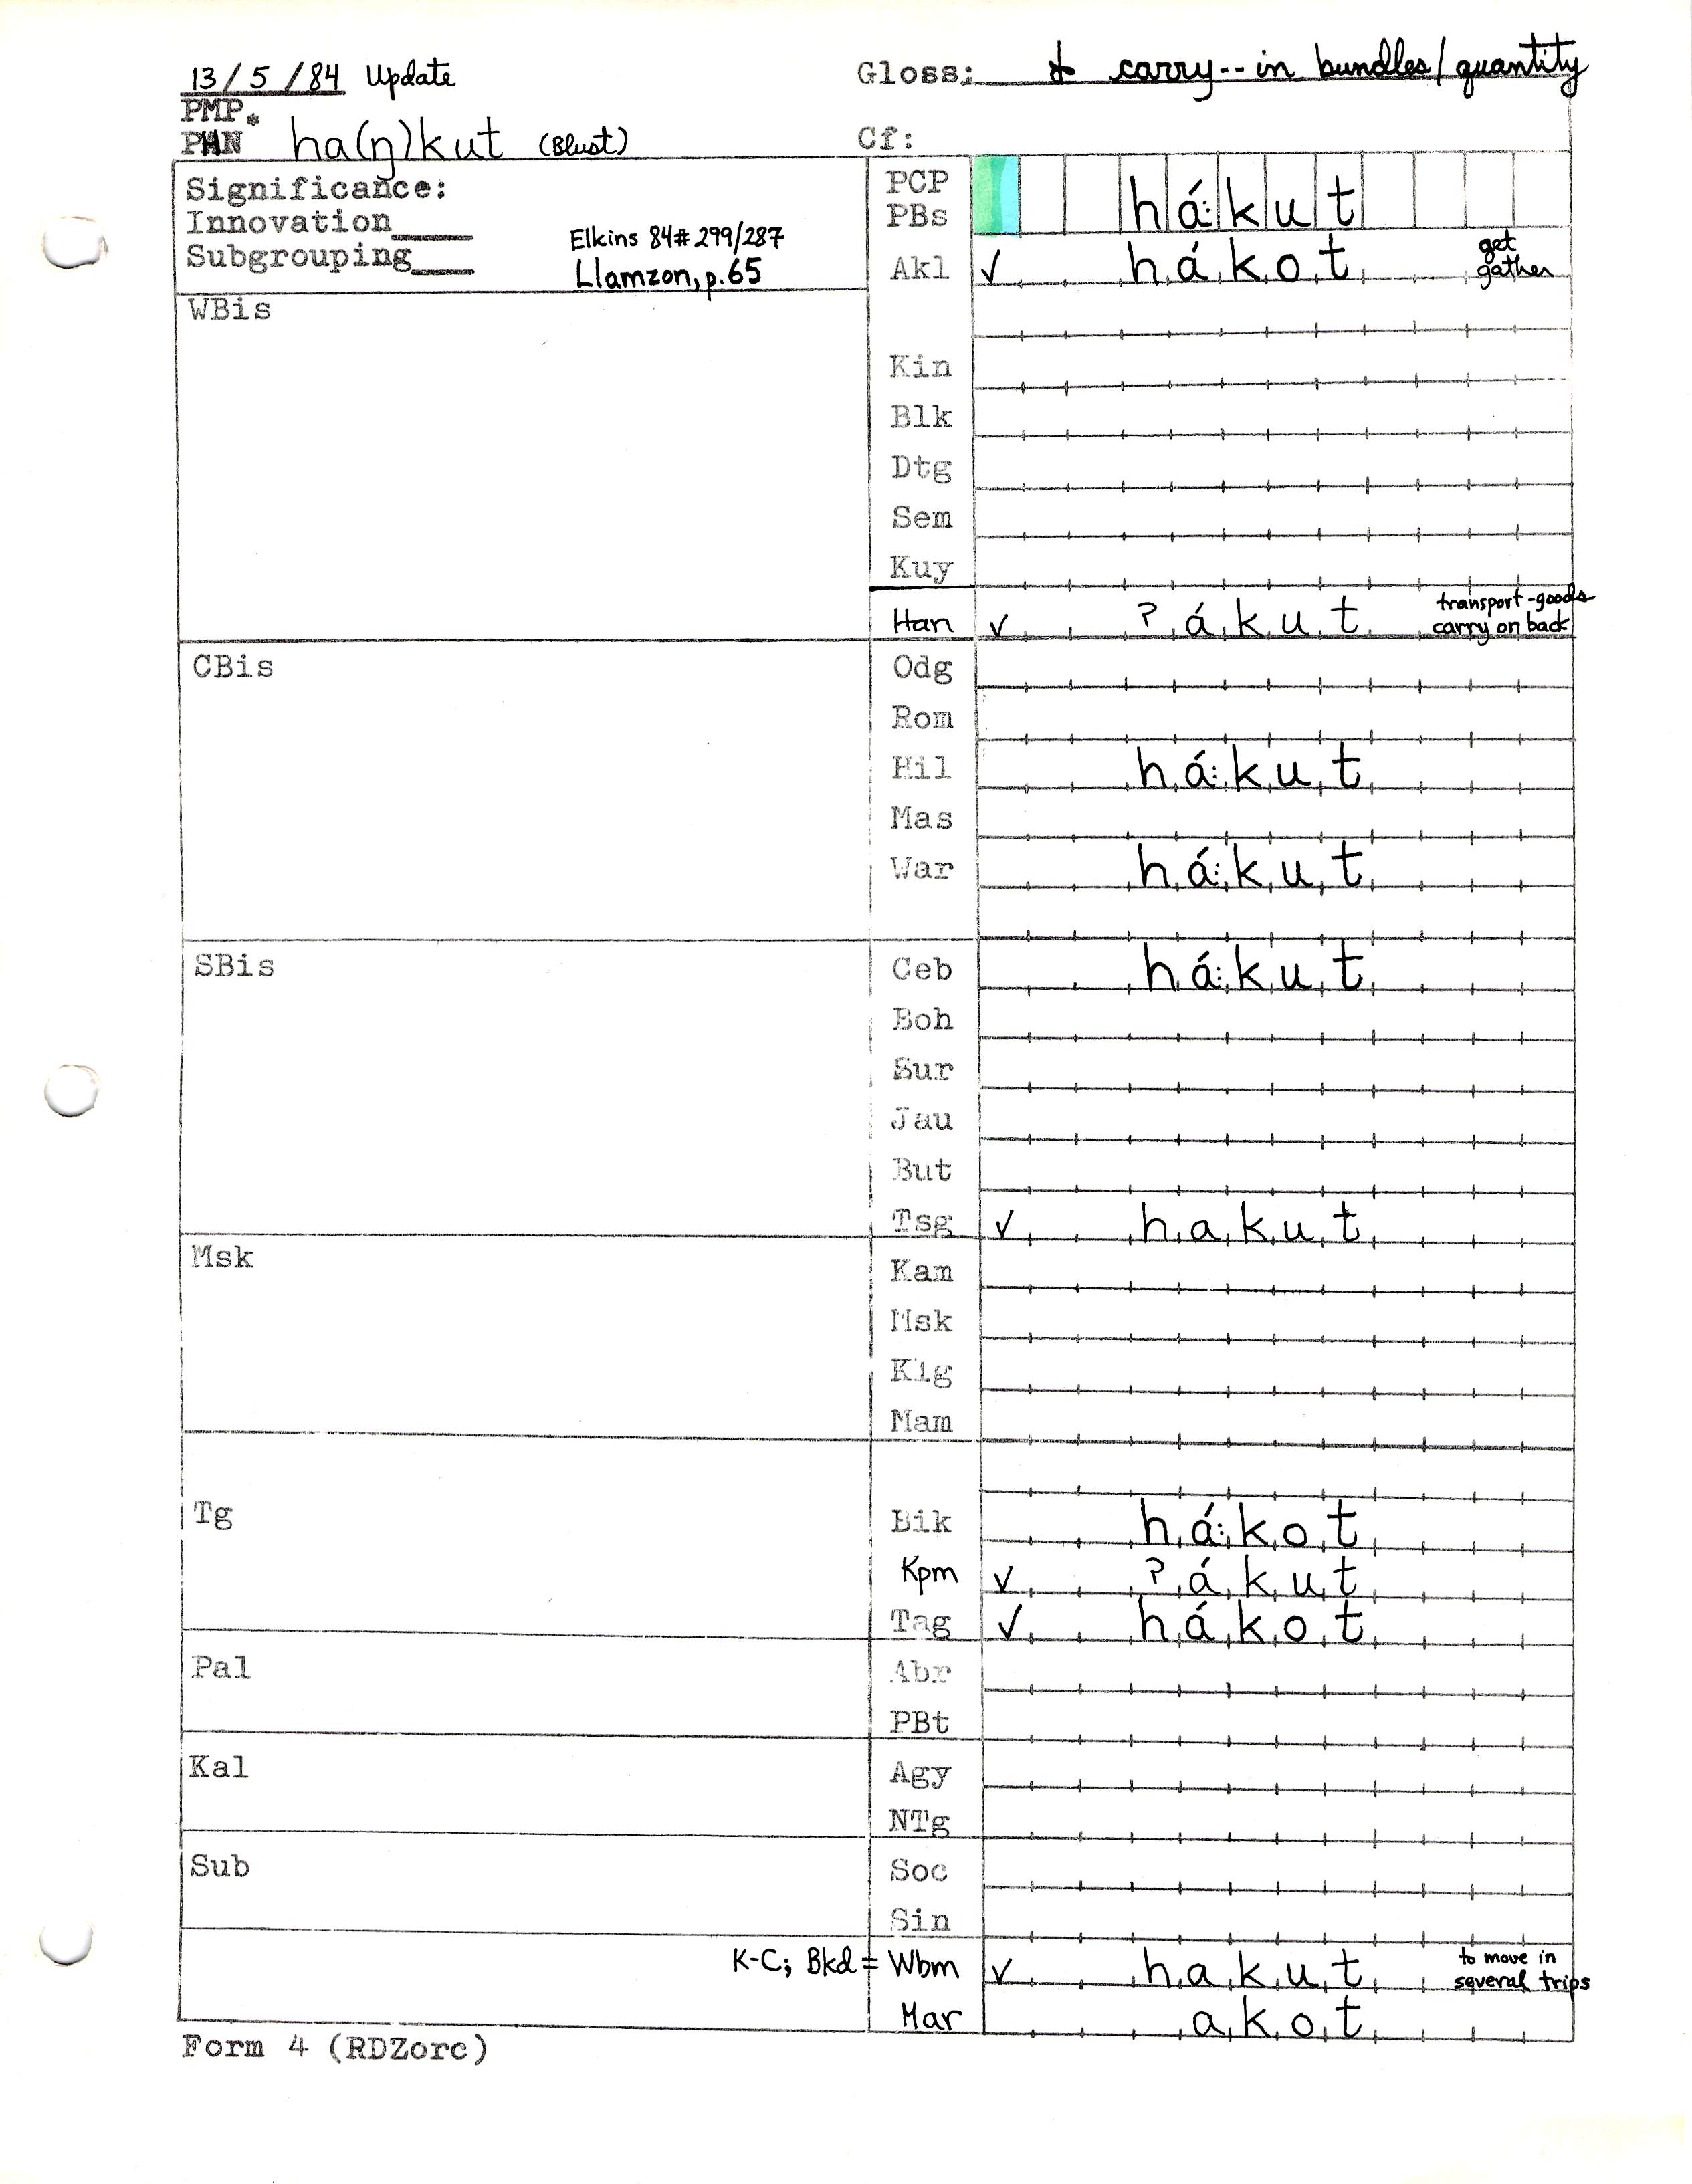 13/5/84 Update
Gloss: to carry--in bundles/quantity
PMP*
PHN ha(ŋ)kut (Blust)
Cf:
Significance:
Innovation____
Subgrouping____
Elkins 84# 299/287
Llamzon, p.65
PCP
PBs há:kut
Akl ✓ hákot get gather
WBis
Kin
Blk
Dtg
Sem
Kuy
Han ✓ ʔákut transport-goods carry on back
CBis
Odg
Rom
Hil há:kut
Mas
War há:kut
SBis
Ceb há:kut
Boh
Sur
Jau
But
Tsg ✓ hakut
Msk
Kam
Msk
Kig
Mam
Tg
Bik há:kot
Kpm ✓ ʔákut
Tag ✓ hákot
Pal
Abr
PBt
Kal
Agy
NTg
Sub
Soc
Sin
K-C; Bkd = Wbm ✓ hakut to move in several trips
Mar akot
Form 4 (RDZorc)